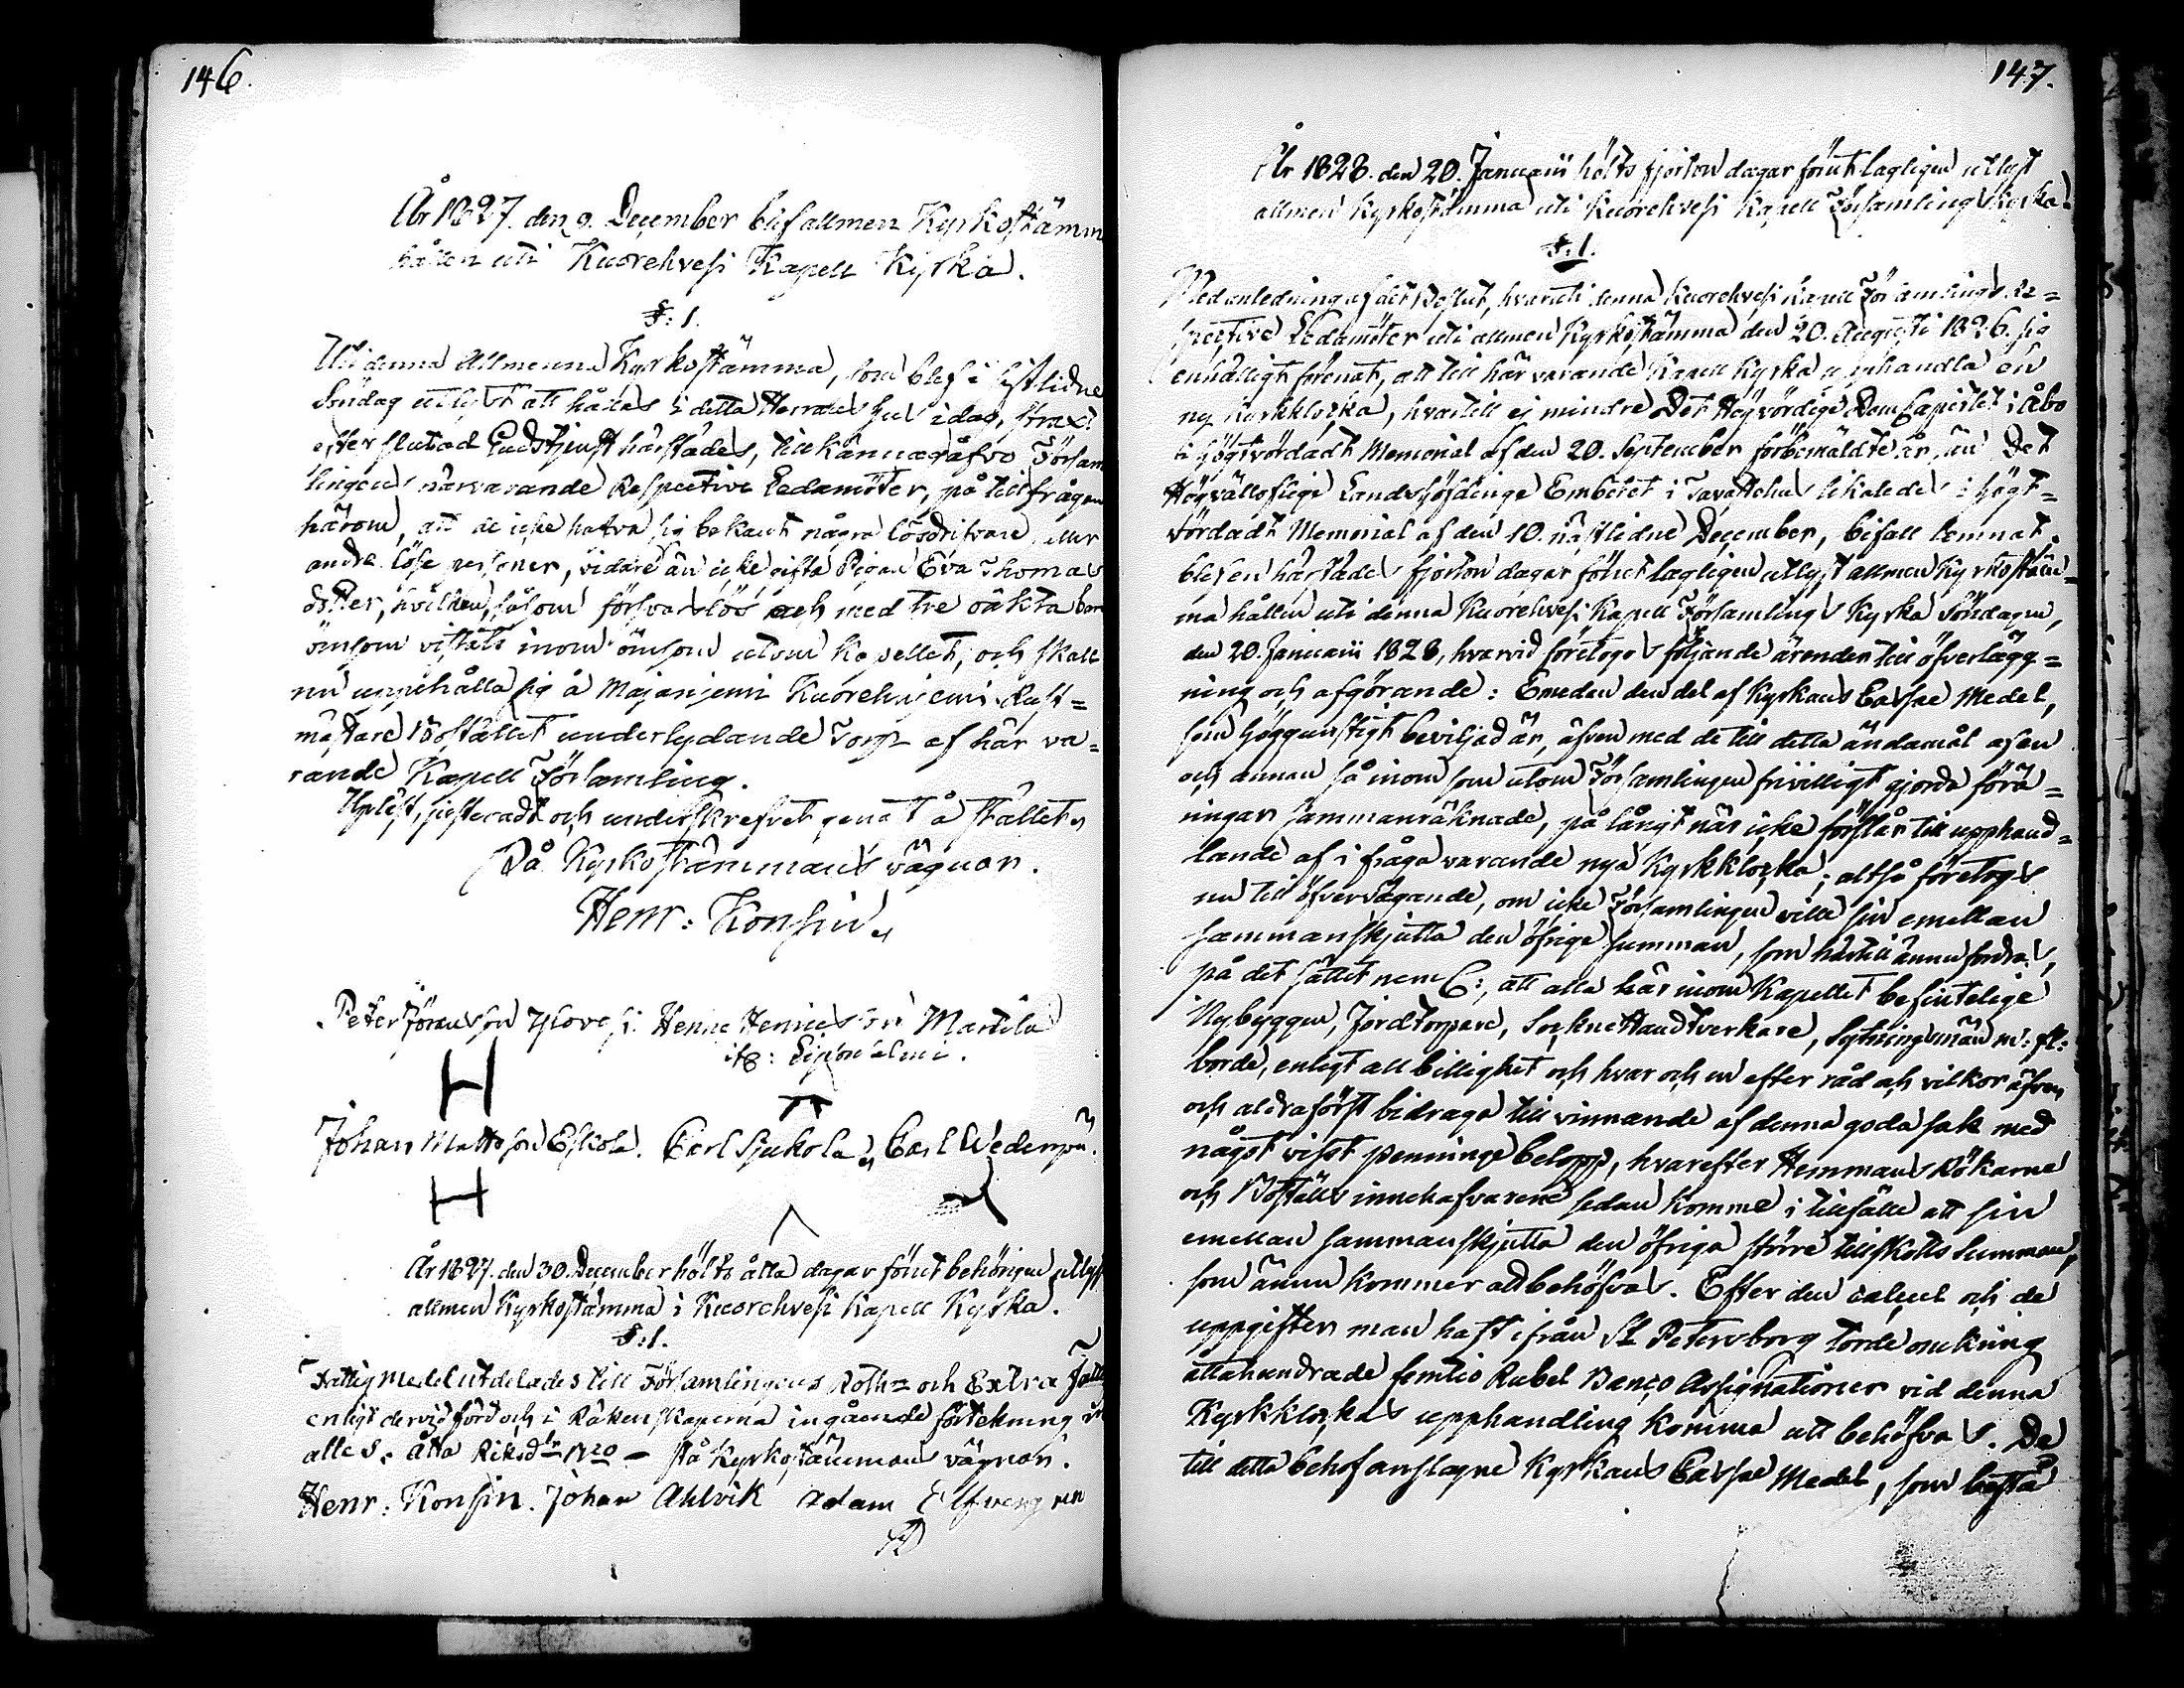 146.
År 1827. den 9. December blef allmen Kyrkostämm
hållen uti Kuorehvesi Kapell Kyrka.
§: 1.
Uti denna Allmenna Kyrkostämma, som blef i sistlidne
Söndag utlyst att hållas i detta Herrans hus i dag, strax
efter slutad Gudstjenst härstädes, tillkännagåfvo Försam
lingens närvarande Respective Ledamöter, på tillfrågan
härom, att de icke hafva sig bekant några lösdrifvare eller
andra löse personer, vidare än icke gifta Pigan Eva Thomas
dotter, hvilken, såsom försvarslös och med tre oäkta barn
ömsom vistats inom ömsom utom Kapellet, och skall
nu uppehålla sig å Majanjemi Kuorehnjemi Rust=
mästare Bostället underlydande Torp af här va=
rande Kapell Församling.
Uplåst, justeradt och underskrefvet genast å stället
På Kyrkostämmans vägnar.
Henr: Konsin
Peter Jöransson Ylöve, i: Henric Henricsson Mattila
Johan Mattsson Eskola. Carl Sjukola Carl Wedenpä.
År 1827. den 30. December hölts åtta dagar förut behörigen utlyst
allmen Kyrkostämma i Kuorehvesi Kapell Kyrka.
§: 1.
Fattigmedel utdelades till Församlingens Rothe= och Extra Fatt
enligt dervid förd och i Räkenskaperna ingående förtekning
alles. åtta Riksd 20 — På Kyrkostämmans vägnar.
Henr: Konsin. Johan Ahlvik Adam Elfvengren
147.
År 1828. den 20. Januarii hölts fjorton dagar förut lagligen utlyst
allmen Kyrkostämma uti Kuorehvesi Kapell Församlings Kyrka.
§: 1.
Med anledning af det Beslut, hvaruti denna Kuorehvesi Kapell Församlings Re=
spective Ledamöter uti allmen Kyrkostämma den 20. Augusti 1826. sig
enhälligt förenat, att till härvarande Kapell Kyrka upphandla en
ny Kyrkklocka, hvartill ej mindre Det Högvördige DomCapitlet i Åbo
i högtvördadt Memorial af den 20. September förbemäldte år, än Det
Högvällofliga Landshöfdinge Embetet i Tavastehus likaledes i högt=
vördadt Memorial af den 10. nästlidne December, bifall lemnat,
blef en härstädes fjorton dagar förut lagligen utlyst allmen Kyrkostäm=
ma hållen uti denna Kuorehvesi Kapell Församlings Kyrka Söndagen,
den 20. Januarii 1828, hvarvid företogs följande ärenden till öfverlägg=
ning och afgörande: Emedan den del af Kyrkans Cassae Medel,
som höggunstigt beviljad är, äfven med de till detta ändamål af en
och annan så inom som utom Församlingen frivilligt gjorda förä=
ringar sammanräknade, på långt när icke förslår till upphand=
lande af i fråga varande nya Kyrkklocka; altså företogs
nu till öfvervägande, om icke Församlingen ville sin emellan
sammanskjutta den öfriga summan, som härtill ännu fordras,
på det sättet neml:, att alla här inom Kapellet befintelige
Nybyggen, Jordtorpare, Sockne Handtverkare, Sytningsmän m: fl:
borde, enligt all billighet och hvar och en efter råd och vilkor äfven
och aldraförst bidraga till vinnande af denna goda sak med
något visst penninge belopp, hvarefter Hemmans Rökarne
och Boställs innehafvarene sedan komme i tillfälle att sin
emellan sammanskjutta den öfriga större tillskotts Summan,
som ännu kommer att behöfvas. Efter den calcul och de
uppgifter man haft ifrån St Petersborg torde omkring
åttahundrade femtio Rubel Banco Assignationer vid denna
Kyrkklockas upphandling komma att behöfvas. De
till detta behof anslagne Kyrkans Cassae Medel, som bestå